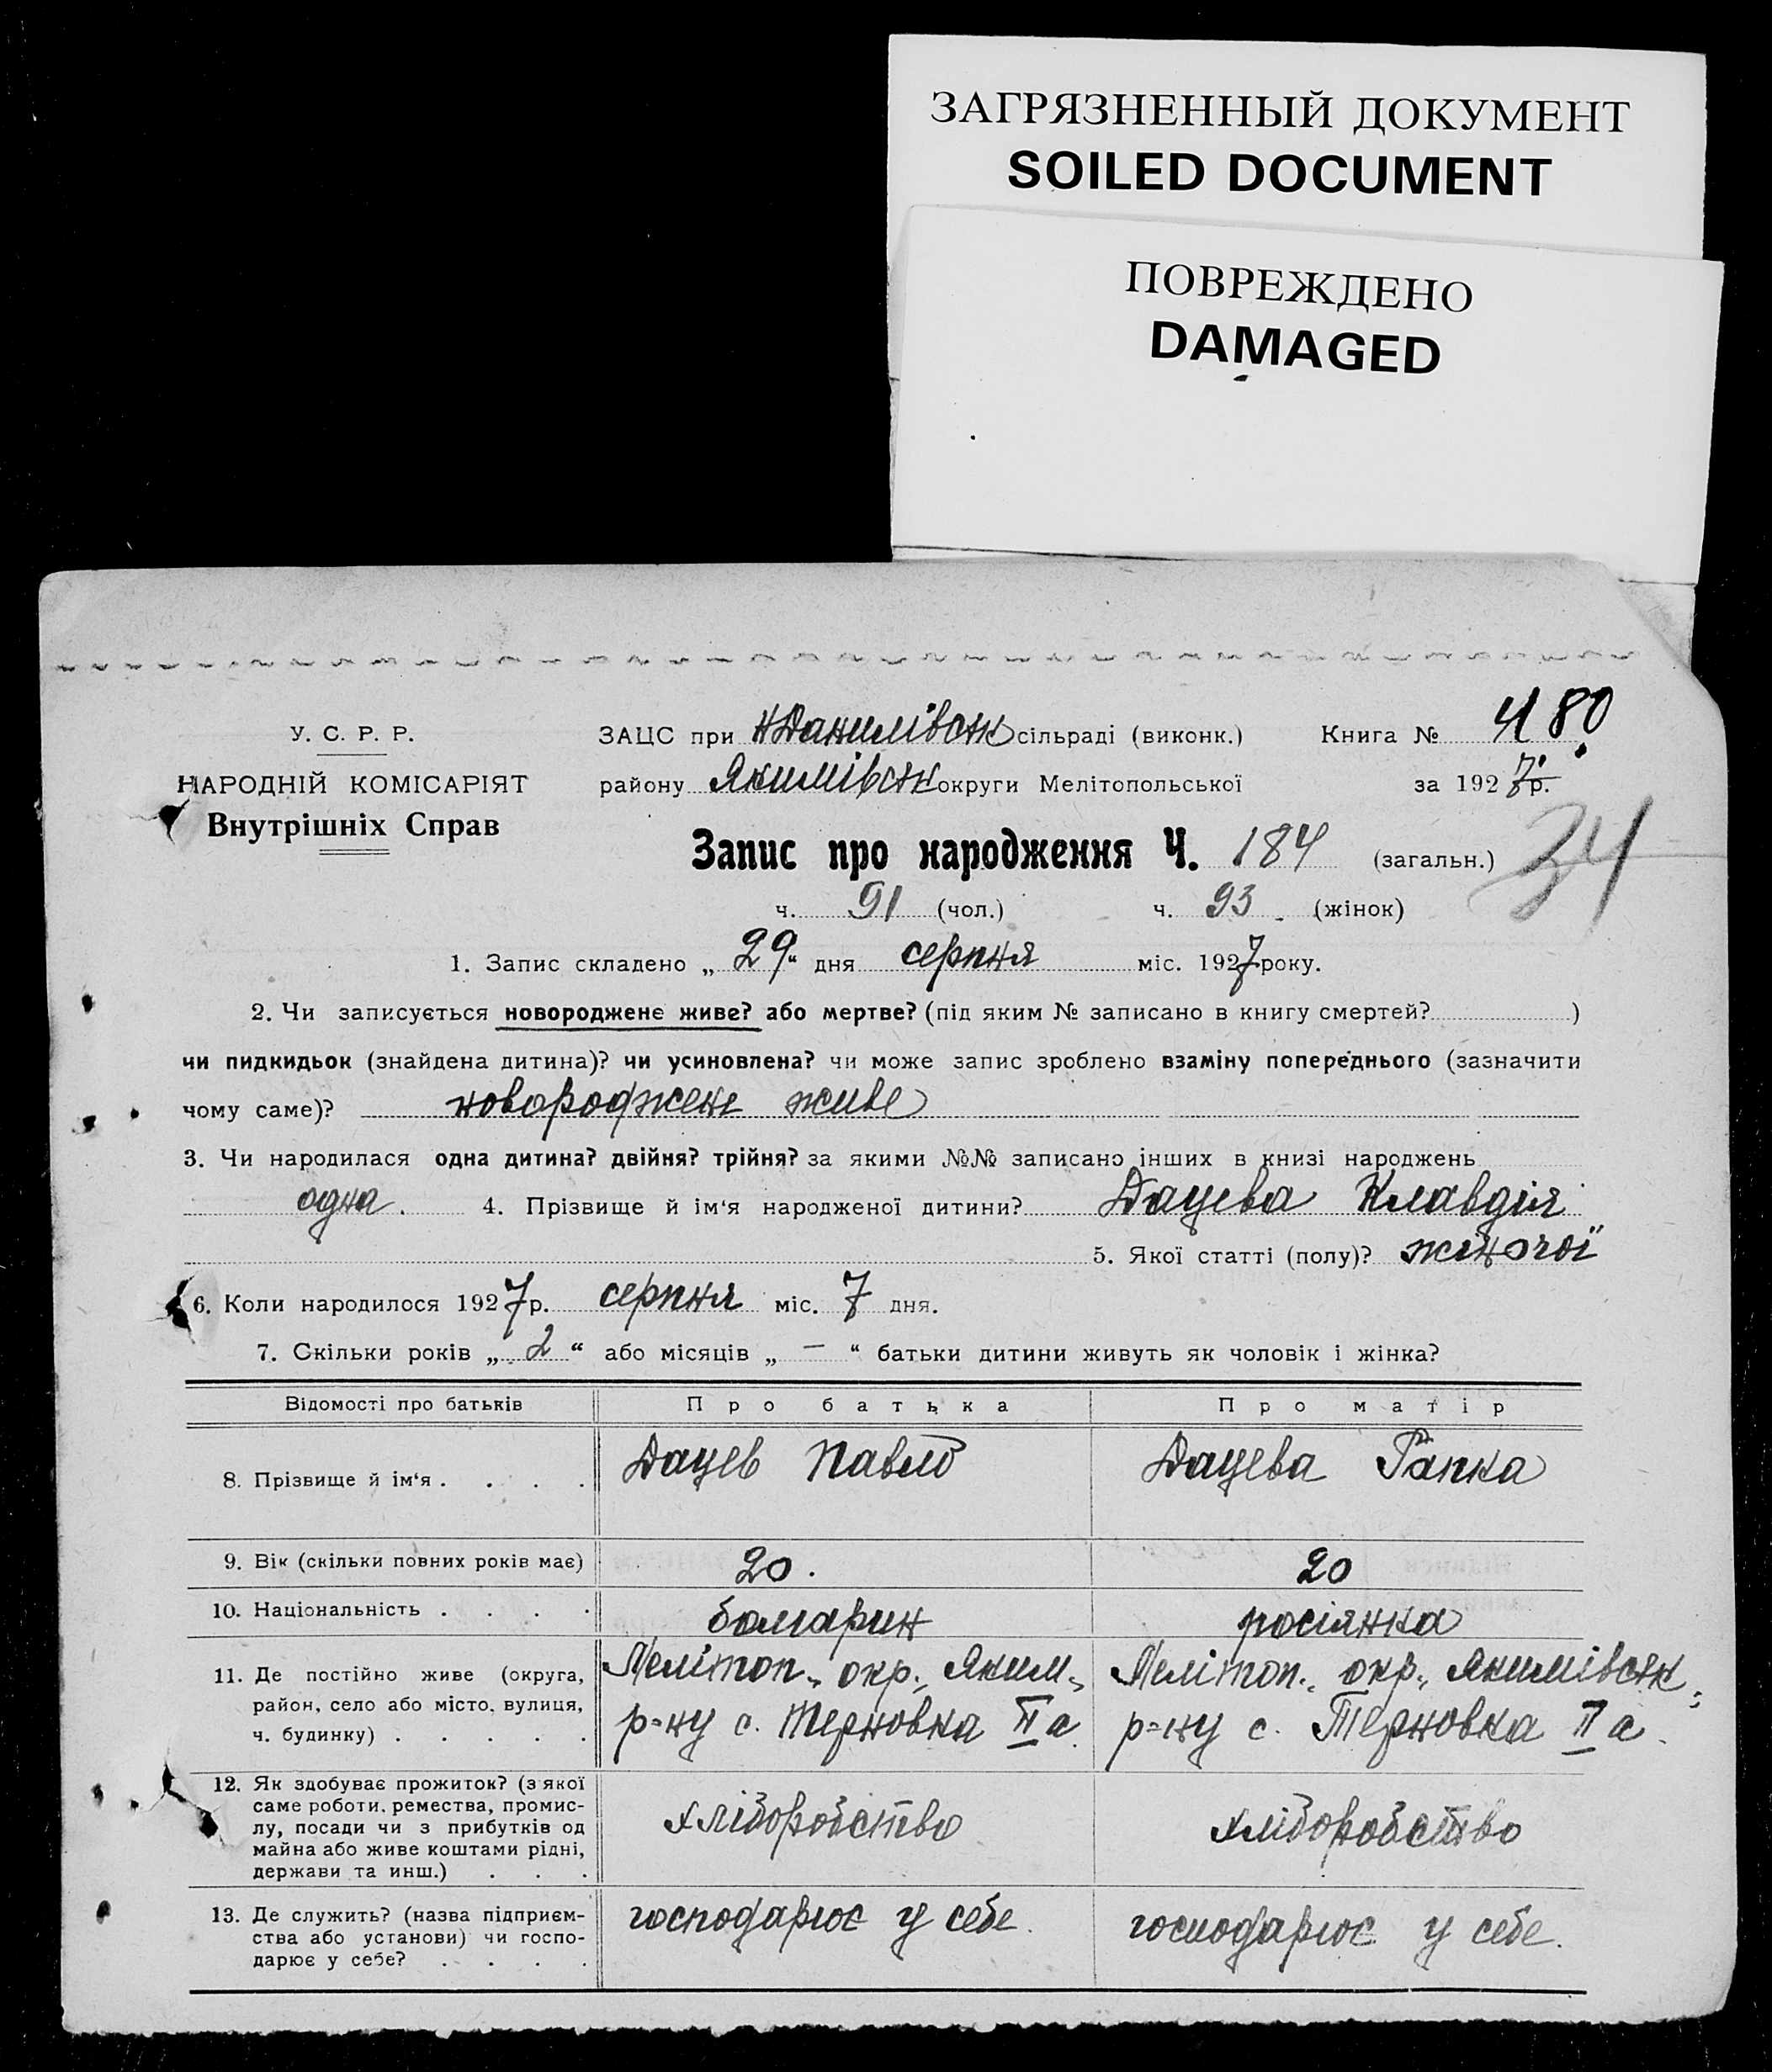 ЗАГРЯЗНЕННЫЙ ДОКУМЕНТ
SOILED DOCUMENT
ПОВРЕЖДЕНО
DAMAGED
У. С. Р. Р.
НАРОДНІЙ КОМІСАРІЯТ
Внутрішніх Справ
ЗАЦС при НДанилівськ сільраді (виконк.) Книга № 80
району Якимівськ округи Мелітопольської за 1927р.
Запис про народження Ч. 184 (загальн.) 34
ч. 91 (чол.) ч. 93 (жінок)
1. Запис складено „29“ дня серпня міс. 1927 року.
2. Чи записується новороджене живе? або мертве? (під яким № записано в книгу смертей? )
чи пидкидьок (знайдена дитина)? чи усиновлена? чи може запис зроблено взаміну попереднього (зазначити
чому саме)? новороджене живе
3. Чи народилася одна дитина? двійня? трійня? за якими №№ записано інших в книзі народжень
одна. 4. Прізвище й ім‘я народженої дитини? Дацева Клавдія
5. Якої статті (полу)? жіночої
6. Коли народилося 1927р. серпня міс. 7 дня.
7. Скільки років „ 2 “ або місяців „ — “ батьки дитини живуть як чоловік і жінка?
Відомості про батьків Про батька Про матір
8. Прізвище й ім‘я . . . . Дацев Павло Дацева Гапка
9. Вік (скільки повних років має) 20. 20
10. Національність . . . . болгарин росіянка
11. Де постійно живе (округа,
район, село або місто, вулиця,
ч. будинку) . . . . .
Мелітоп. окр., Яким.
р-ну с. Терновка II а.
Мелітоп. окр., Якимівськ.
р-ну с. Терновка II а.
12. Як здобуває прожиток? (з якої
саме роботи, ремества, промис-
лу, посади чи з прибутків од
майна або живе коштами рідні,
держави та инш.) . . .
хліборобство хліборобство
13. Де служить? (назва підприєм-
ства або установи) чи госпо-
дарює у себе? . . . .
господарює у себе. господарює у себе.